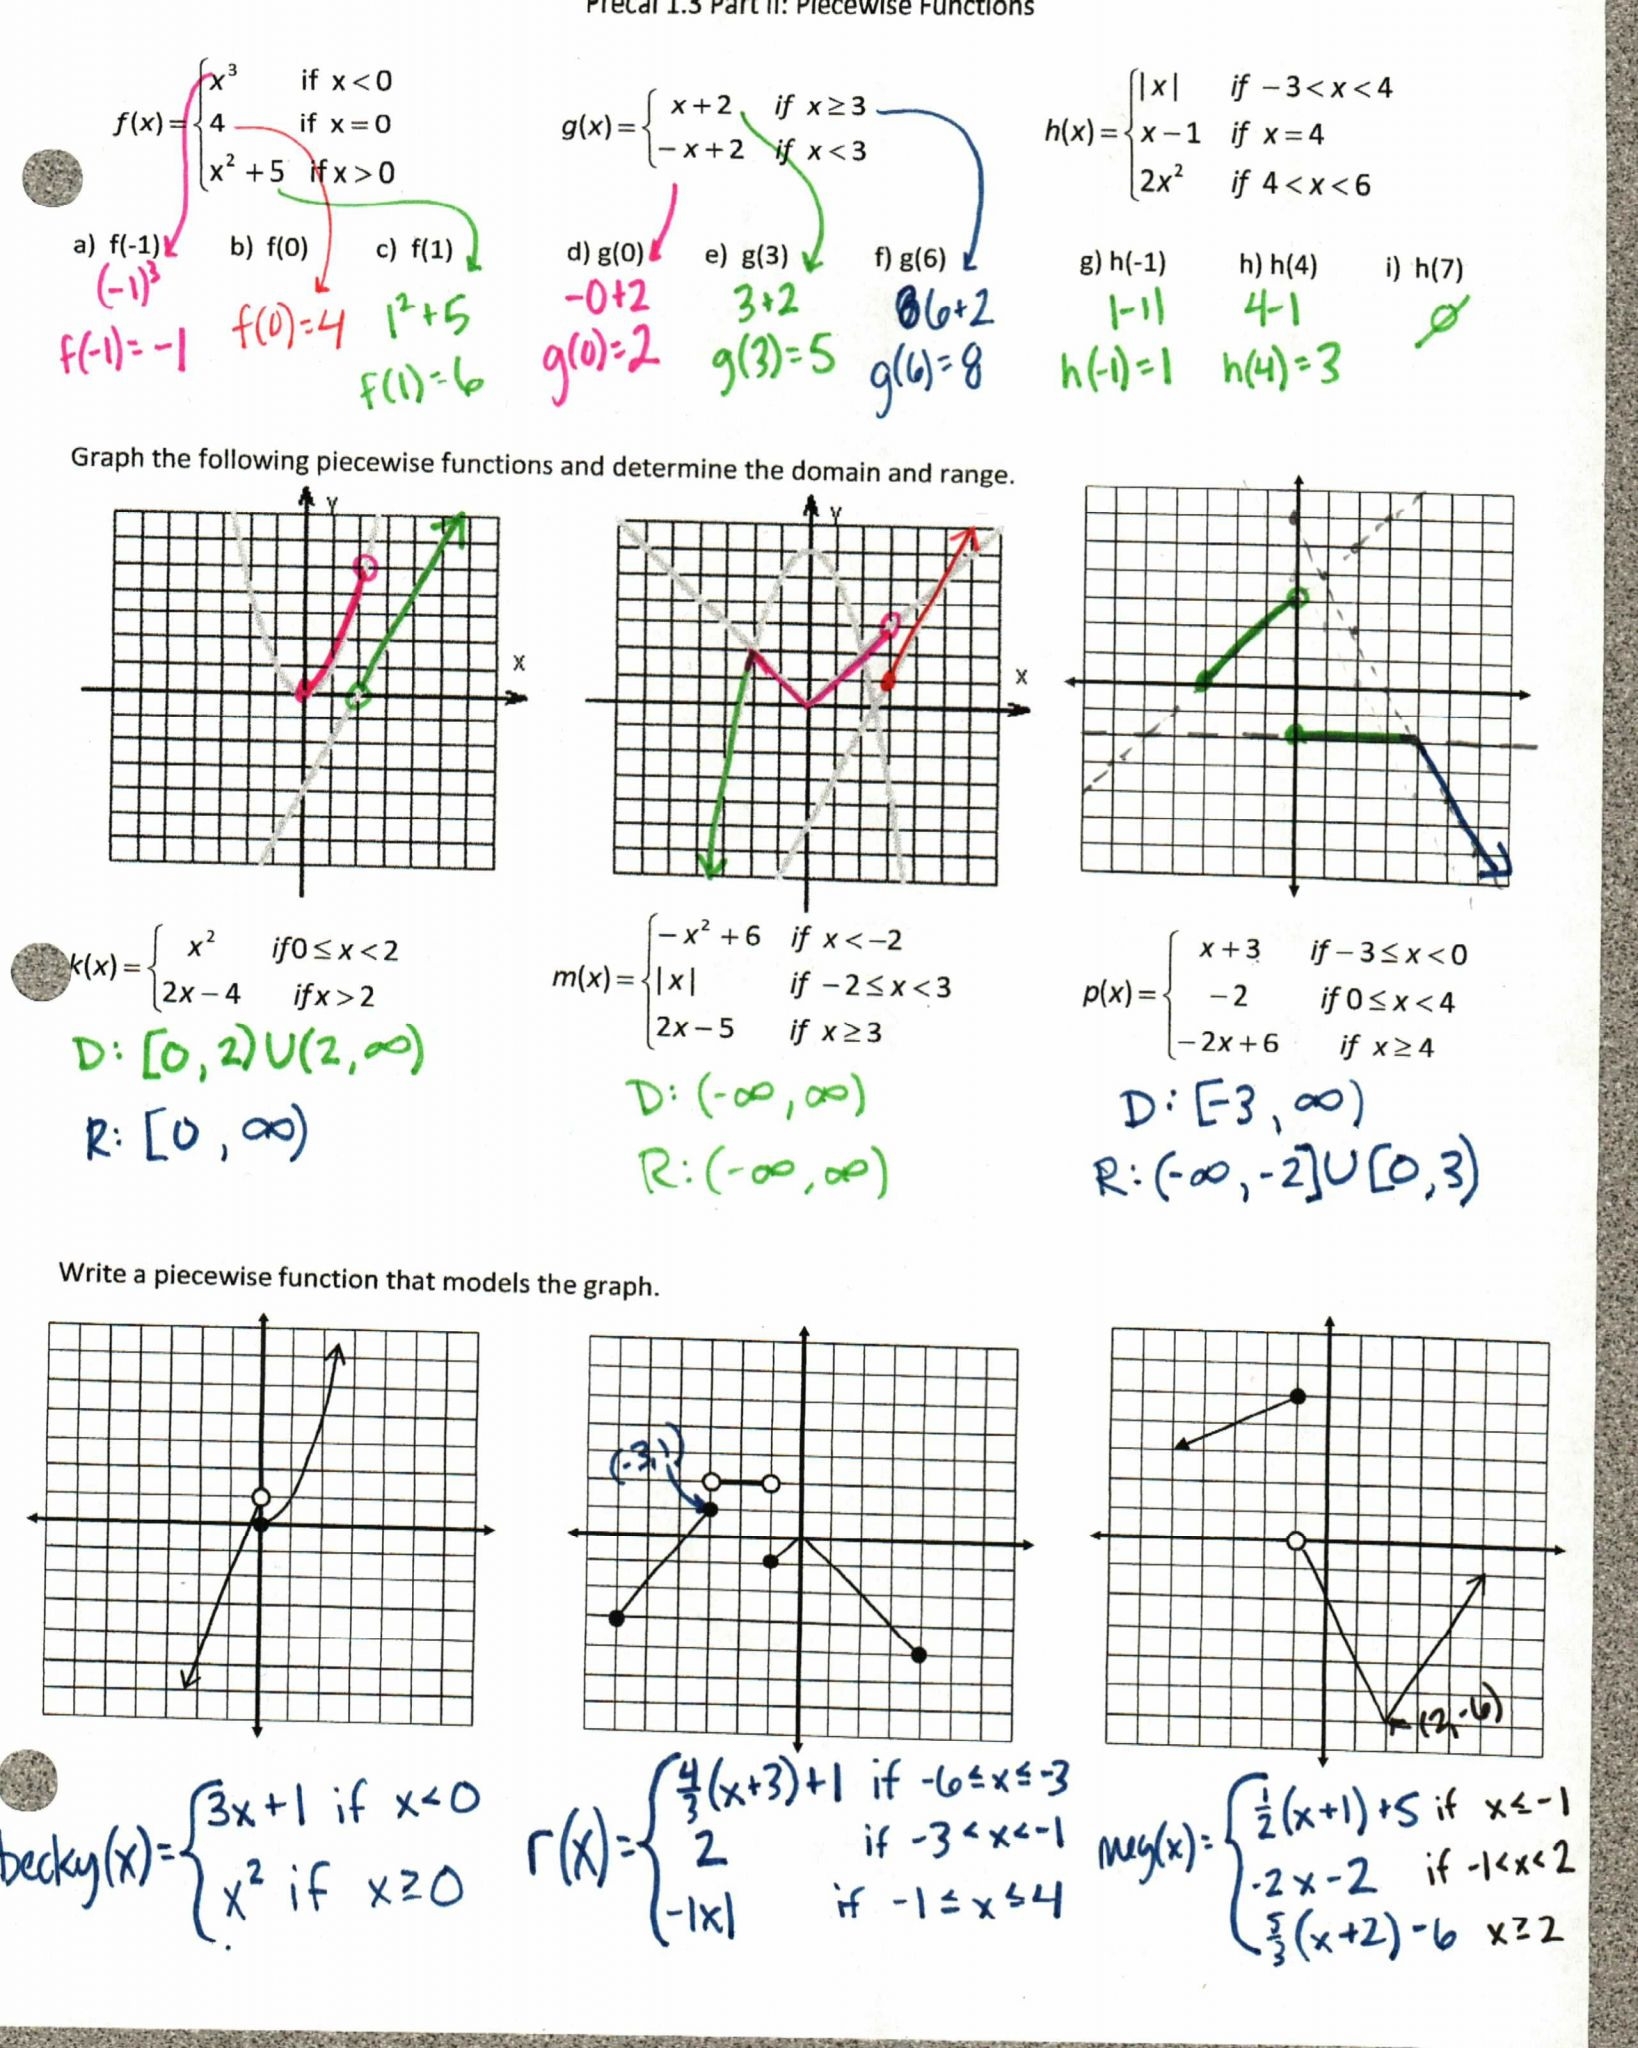 Precal 1.3 Part II: Piecewise Functions
f(x) = { x³ if x < 0
4 if x = 0
x² + 5 if x > 0
g(x) = { x + 2 if x ≥ 3
−x + 2 if x < 3
h(x) = { |x| if −3 < x < 4
x − 1 if x = 4
2x² if 4 < x < 6
a) f(-1) b) f(0) c) f(1) d) g(0) e) g(3) f) g(6) g) h(-1) h) h(4) i) h(7)
(-1)³
f(-1) = -1
f(0) = 4
1² + 5
f(1) = 6
-0+2
g(0) = 2
3+2
g(3) = 5
6+2
g(6) = 8
|-1|
h(-1) = 1
4-1
h(4) = 3
∅
Graph the following piecewise functions and determine the domain and range.
y
x
y
x
k(x) = { x² if 0 ≤ x < 2
2x − 4 if x > 2
D: [0, 2) U (2, ∞)
R: [0, ∞)
m(x) = { −x² + 6 if x < −2
|x| if −2 ≤ x < 3
2x − 5 if x ≥ 3
D: (-∞, ∞)
R: (-∞, ∞)
p(x) = { x + 3 if −3 ≤ x < 0
−2 if 0 ≤ x < 4
−2x + 6 if x ≥ 4
D: [-3, ∞)
R: (-∞, -2] U [0, 3)
Write a piecewise function that models the graph.
(-3,1)
(2,-6)
becky(x) = { 3x+1 if x < 0
x² if x ≥ 0
r(x) = { 4/3(x+3)+1 if -6 ≤ x ≤ -3
2 if -3 < x < -1
-|x| if -1 ≤ x ≤ 4
meg(x) = { 1/2(x+1)+5 if x ≤ -1
-2x-2 if -1 < x < 2
5/3(x+2)-6 x ≥ 2